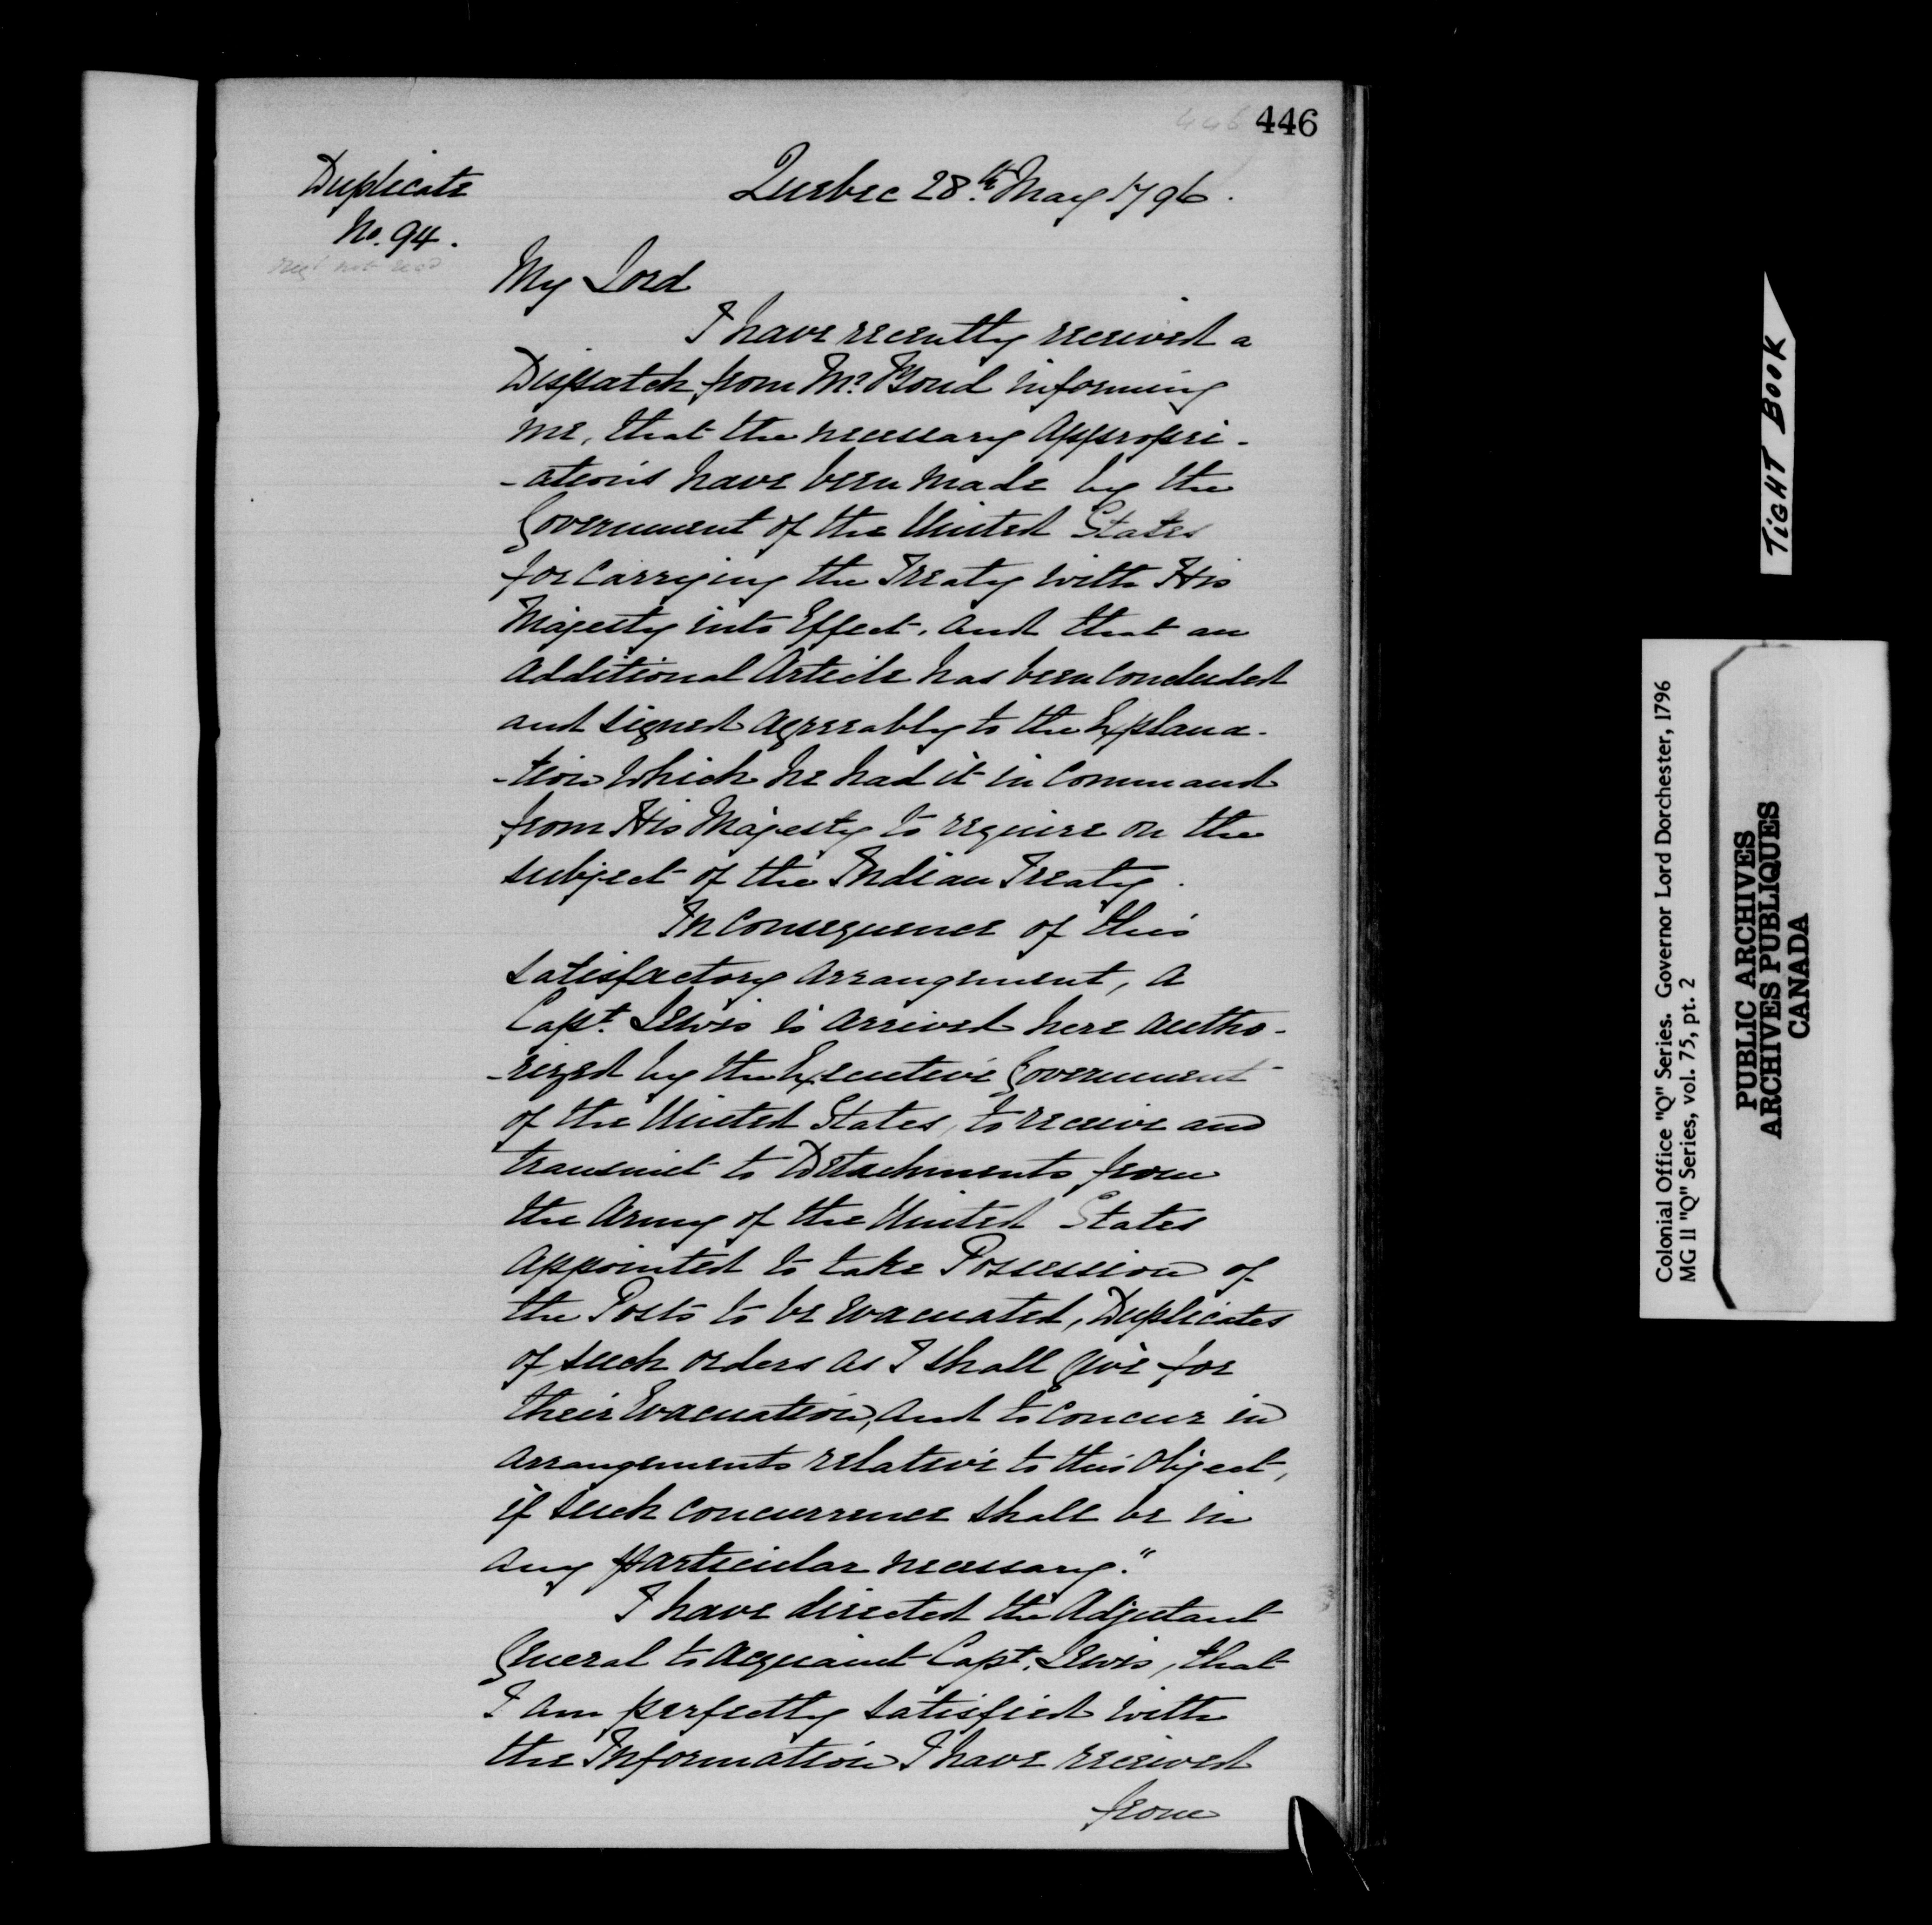 446 446
Duplicate
No. 94.
Quebec 28th May 1796.
My Lord
I have recently received a
Dispatch from Mr. Bond informing
me, that the necessary Appropri-
-ations have been made by the
Government of the United States
for carrying the Treaty with His
Majesty into Effect, and that an
additional Article has been concluded
and signed agreeably to the Explana-
-tion which he had it in command
from His Majesty to require on the
subject of the Indian Treaty.
In Consequence of this
satisfactory arrangement, a
Capt. Lewis is arrived here autho-
-rized by the Executive Government
of the United States, to receive and
transmit to Detachments from
the Army of the United States
appointed to take Possession of
the Posts to be evacuated, Duplicates
of such orders as I shall give for
their Evacuation, and to concur in
arrangements relative to this object,
if such concurrence shall be in
any particular necessary."
I have directed the Adjutant
General to acquaint Capt. Lewis, that
I am perfectly satisfied with
the Information I have received
from
TIGHT BOOK
Colonial Office "Q" Series. Governor Lord Dorchester, 1796
MG 11 "Q" Series, vol. 75, pt. 2
PUBLIC ARCHIVES
ARCHIVES PUBLIQUES
CANADA